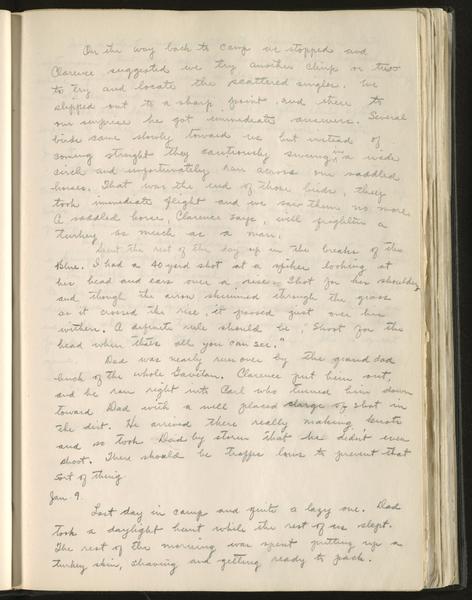 On the way back to camp we stopped and
Clarence suggested we try another chirp or two
to try and locate the scattered singles. We
slipped out to a sharp point and there to
our surprise he got immediate answers. Several
birds came slowly toward us but instead of
coming straight they cautiously swung in a wide
circle and unfortunately ran across our saddled
horses. That was the end of those birds, they
took immediate flight and we saw them no more.
A saddled horse, Clarence says, will frighten a
turkey as much as a man.
Hunt the rest of the day up in the breaks of the
Blue. I had a 40 yard shot at a spiker looking at
her head and ears over a rise. Shot for her shoulder
and though the arrow skimmed through the grass
as it crossed the rise, it passed just over her
withers. A definite rule should be, "Shoot for the
head when that's all you can see."
Dad was nearly run over by the grand dad
buck of the whole Gavilan. Clarence put him out,
and he ran right into Carl who turned him down
toward Dad with a well placed shot in
the dirt. He arrived there really making knots
and so took Dad by storm that he didn't even
shoot. There should be traffic laws to prevent that
sort of thing.
Jan 9.
Last day in camp and quite a lazy one. Dad
took a daylight hunt while the rest of us slept.
The rest of the morning was spent putting up a
turkey skin, shaving and getting ready to pack.